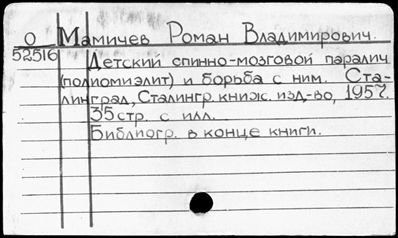 О Мамичев Роман Владимирович.
52516 Детский спинно-мозговой паралич
(полиомиэлит) и борьба с ним. Ста-
линград, Сталингр. книж. изд-во, 1957.
35 стр. с илл.
Библиогр. в конце книги.